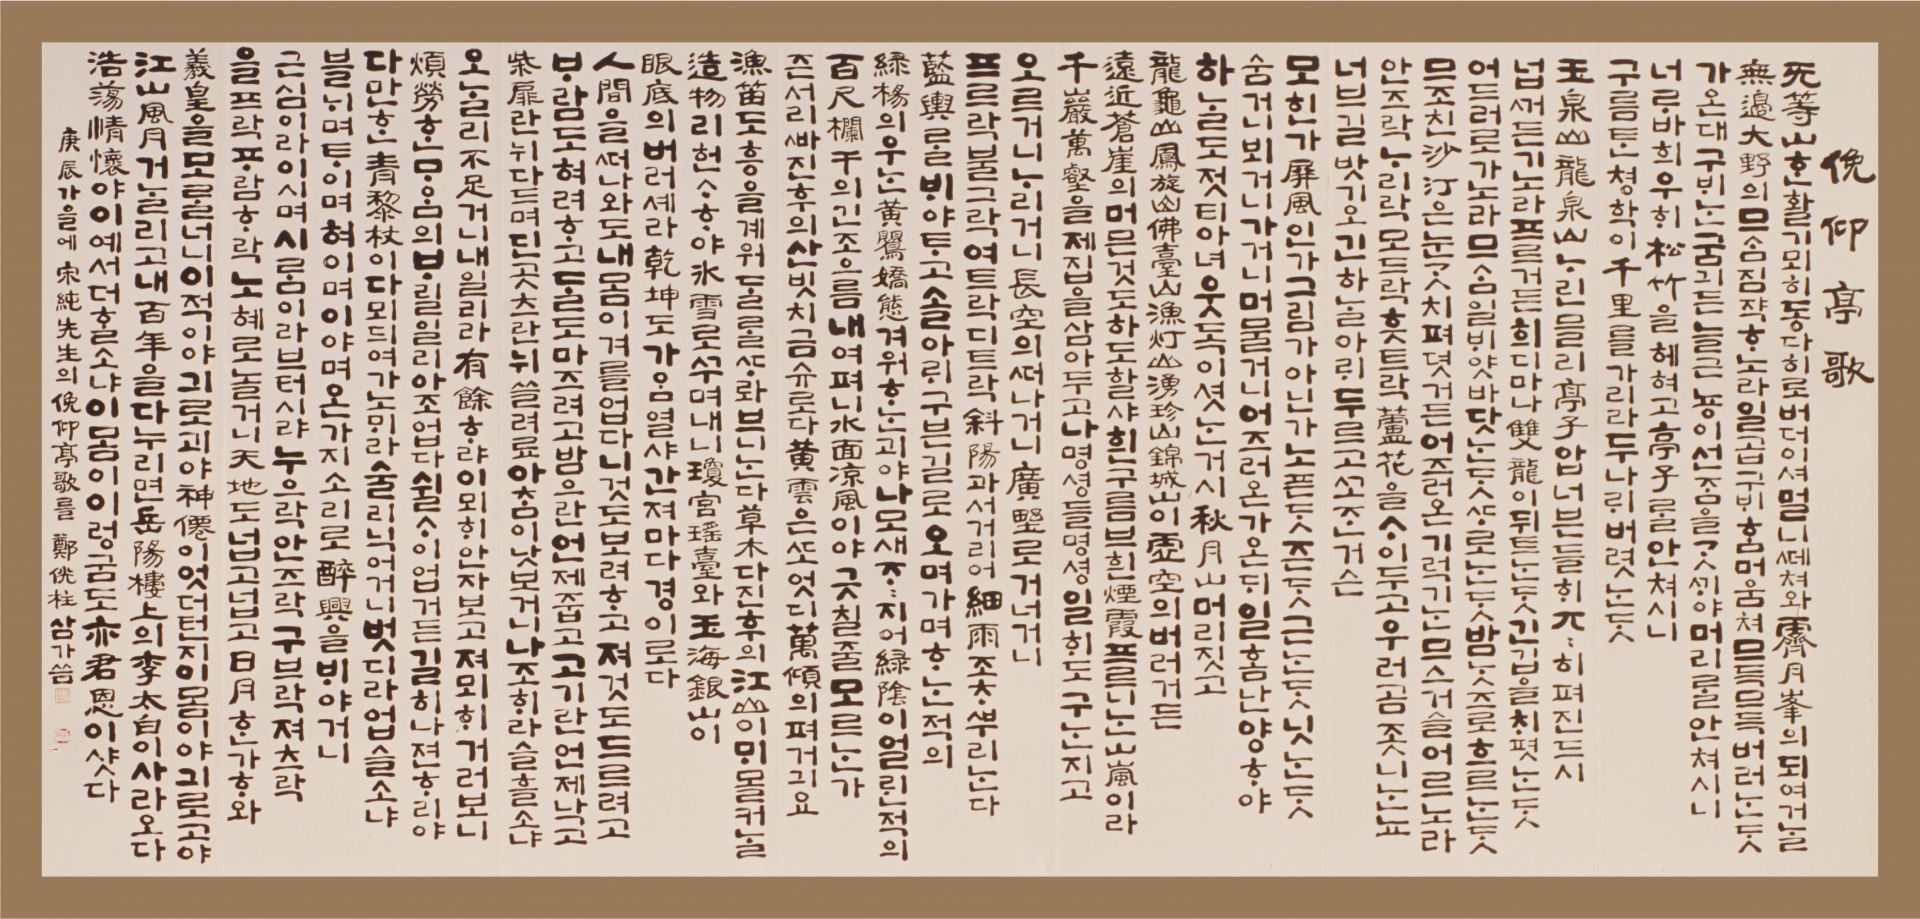 俛仰亭歌
无等山ᄒᆞᆫ활기뫼희동다히로버더이셔멀니ᄯᅦ쳐와霽月峯의되여거ᄂᆞᆯ
無邊大野의므ᄉᆞᆷ짐쟉ᄒᆞ노라일곱구ᄇᆡᄒᆞᆷ머움쳐므득므득버려ᄂᆞᆫᄃᆞᆺ
가온대구ᄇᆡᄂᆞᆫ굼긔든늘근뇽이선ᄌᆞᆷ을ᄀᆞᆺᄭᆡ야머리ᄅᆞᆯ안쳐시니
너ᄅᆞ바회우ᄒᆡ松竹을헤혀고亭子ᄅᆞᆯ안쳐시니
구름ᄐᆞᆫ쳥학이千里를가리라두나ᄅᆡ버렷ᄂᆞᆫᄃᆞᆺ
玉泉山龍泉山ᄂᆞ린믈리亭子압너븐들ᄒᆡ兀〻히펴진드시
넙꺼든기노라프르거든희디마나雙龍이뒤트ᄂᆞᆫᄃᆞᆺ긴깁을ᄎᆡ폇ᄂᆞᆫᄃᆞᆺ
어드러로가노라므ᄉᆞᆷ일ᄇᆡ얏바닷ᄂᆞᆫᄃᆞᆺᄯᆞ로ᄂᆞᆫᄃᆞᆺ밤ᄂᆞᆺ즈로흐르ᄂᆞᆫᄃᆞᆺ
므조친沙汀은눈ᄀᆞᆺ치펴뎟거든어즈러온기럭기ᄂᆞᆫ므스거슬어르노라
안즈락ᄂᆞ리락모드락흣트락蘆花을ᄉᆞ이두고우러곰좃니ᄂᆞᆫ뇨
너브길밧기오긴하ᄂᆞᆯ아ᄅᆡ두르고ᄭᅩ존거슨
모힌가屛風인가그림가아닌가노픈ᄃᆞᆺᄂᆞ즌ᄃᆞᆺ근ᄂᆞᆫᄃᆞᆺ닛ᄂᆞᆫᄃᆞᆺ
숨거니뵈거니가거니머믈거니어즈러온가온ᄃᆡ일홈난양ᄒᆞ야
하ᄂᆞᆯ도젓티아녀웃독이셧ᄂᆞᆫ거시秋月山머리짓고
龍龜山鳳旋山佛臺山漁灯山湧珍山錦城山이虛空의버러거든
遠近蒼崖의머믄것도하도할샤흰구름브흰煙霞프르니ᄂᆞᆫ山嵐이라
千巖萬壑을제집을삼아두고나명셩들명셩일ᄒᆡ도구ᄂᆞᆫ지고
오르거니ᄂᆞ리거니長空의ᄯᅥ나거니廣野로거너거니
프르락블그락여트락디트락斜陽과서거디어細雨조ᄎᆞᄲᅮ리ᄂᆞᆫ다
藍輿ᄅᆞᆯᄇᆡ야ᄐᆞ고솔아ᄅᆡ구븐길로오며가며ᄒᆞᄂᆞᆫ적의
綠楊의우ᄂᆞᆫ黃鸎嬌態겨워ᄒᆞᄂᆞᆫ괴야나모새ᄌᆞ〻지어綠陰이얼린적의
百尺欄干의긴조으름내여펴니水面凉風이야긋칠줄모르ᄂᆞᆫ가
즌서리ᄲᅡ진후의산빗치금슈로다黃雲은ᄯᅩ엇디萬頃의펴거긔요
漁笛도흥을계워ᄃᆞᆯ를ᄯᆞ롸브니ᄂᆞᆫ다草木다진후의江山이ᄆᆡ몰커ᄂᆞᆯ
造物리헌ᄉᆞᄒᆞ야氷雪로ᄭᅮ며내니瓊宮瑤臺와玉海銀山이
眼底의버러셰라乾坤도가ᄋᆞᆷ열샤간저마다경이로다
人間을ᄯᅥ나와도내몸이겨를업다니것도보려ᄒᆞ고져것도드르려고
ᄇᆞ람도혀려ᄒᆞ고ᄃᆞᆯ도마즈려고밤으란언제줍고고기란언제낙고
柴扉란뉘다드며딘곳츠란뉘쓸려료아ᄎᆞᆷ이낫브거니나조ᄒᆡ라슬흘소냐
오ᄂᆞᆯ리不足거니내일리라有餘ᄒᆞ랴이뫼ᄒᆡ안자보고져뫼ᄒᆡ거러보니
煩勞ᄒᆞᆫᄆᆞᄋᆞᆷ의ᄇᆞ릴일리아조업다쉴ᄉᆞ이업거든길히나젼ᄒᆞ리야
다만ᄒᆞᆫ靑黎杖이다모듸여가노ᄆᆡ라술리닉어거니벗디라업슬소냐
블ᄂᆡ며ᄐᆞ이며혀이며이야며온가지소리로醉興을ᄇᆡ야거니
근심이라이시며시ᄅᆞᆷ이라브터시랴누으락안즈락구브락져츠락
을프락ᄑᆞ람ᄒᆞ락노혜로놀거니天地도넙고넙고日月ᄒᆞᆫ가ᄒᆞ와
羲皇을모ᄅᆞᆯ너니이적이야긔로괴야神僊이엇더턴지이몸이야긔로고야
江山風月거ᄂᆞᆯ리고내百年을다누리면岳陽樓上의李太白이사라오다
浩蕩情懷야이예서더ᄒᆞᆯ소냐이몸이이렁굼도亦君恩이샷다
庚辰가을에宋純先生의俛仰亭歌를 鄭侊柱 삼가씀